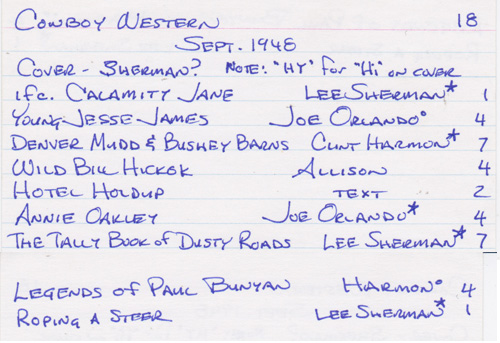 COWBOY WESTERN 18
SEPT. 1948
COVER - SHERMAN? NOTE: "HY" for "Hi" ON COVER
ifc. CALAMITY JANE LEE SHERMAN* 1
YOUNG JESSE JAMES JOE ORLANDO° 4
DENVER MUDD & BUSHEY BARNS CLINT HARMON* 7
WILD BILL HICKOK ALLISON 4
HOTEL HOLDUP TEXT 2
ANNIE OAKLEY JOE ORLANDO* 4
THE TALLY BOOK of DUSTY ROADS LEE SHERMAN* 7
LEGENDS OF PAUL BUNYAN HARMON° 4
ROPING A STEER LEE SHERMAN* 1